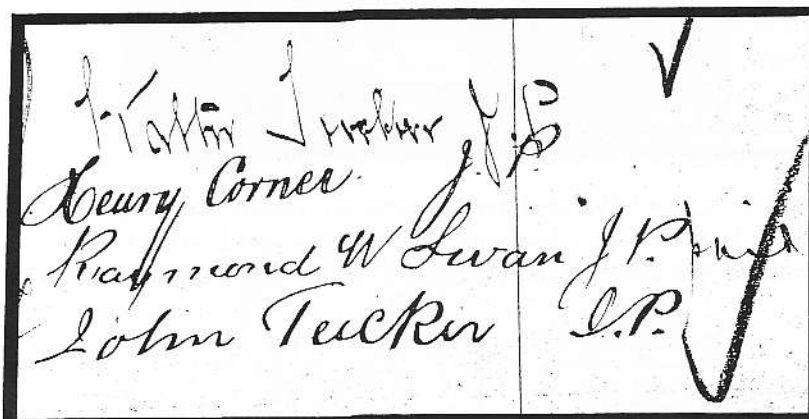 Walter J.P.
Henry Corner J.P.
Raymond W Swan J.P.
John Tucker J.P.